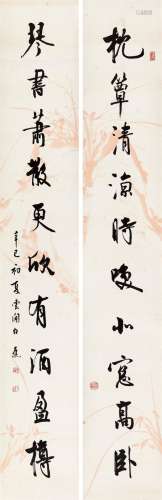 枕簟清涼時喚北窗高卧
琴書蕭散更欣有酒盈樽
辛巳初夏雲間白蕉